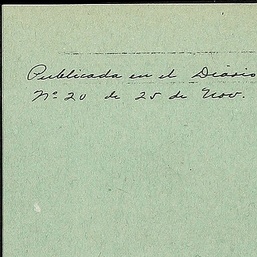 Publicada en el Diario
Nº 20 de 25 de Nov.